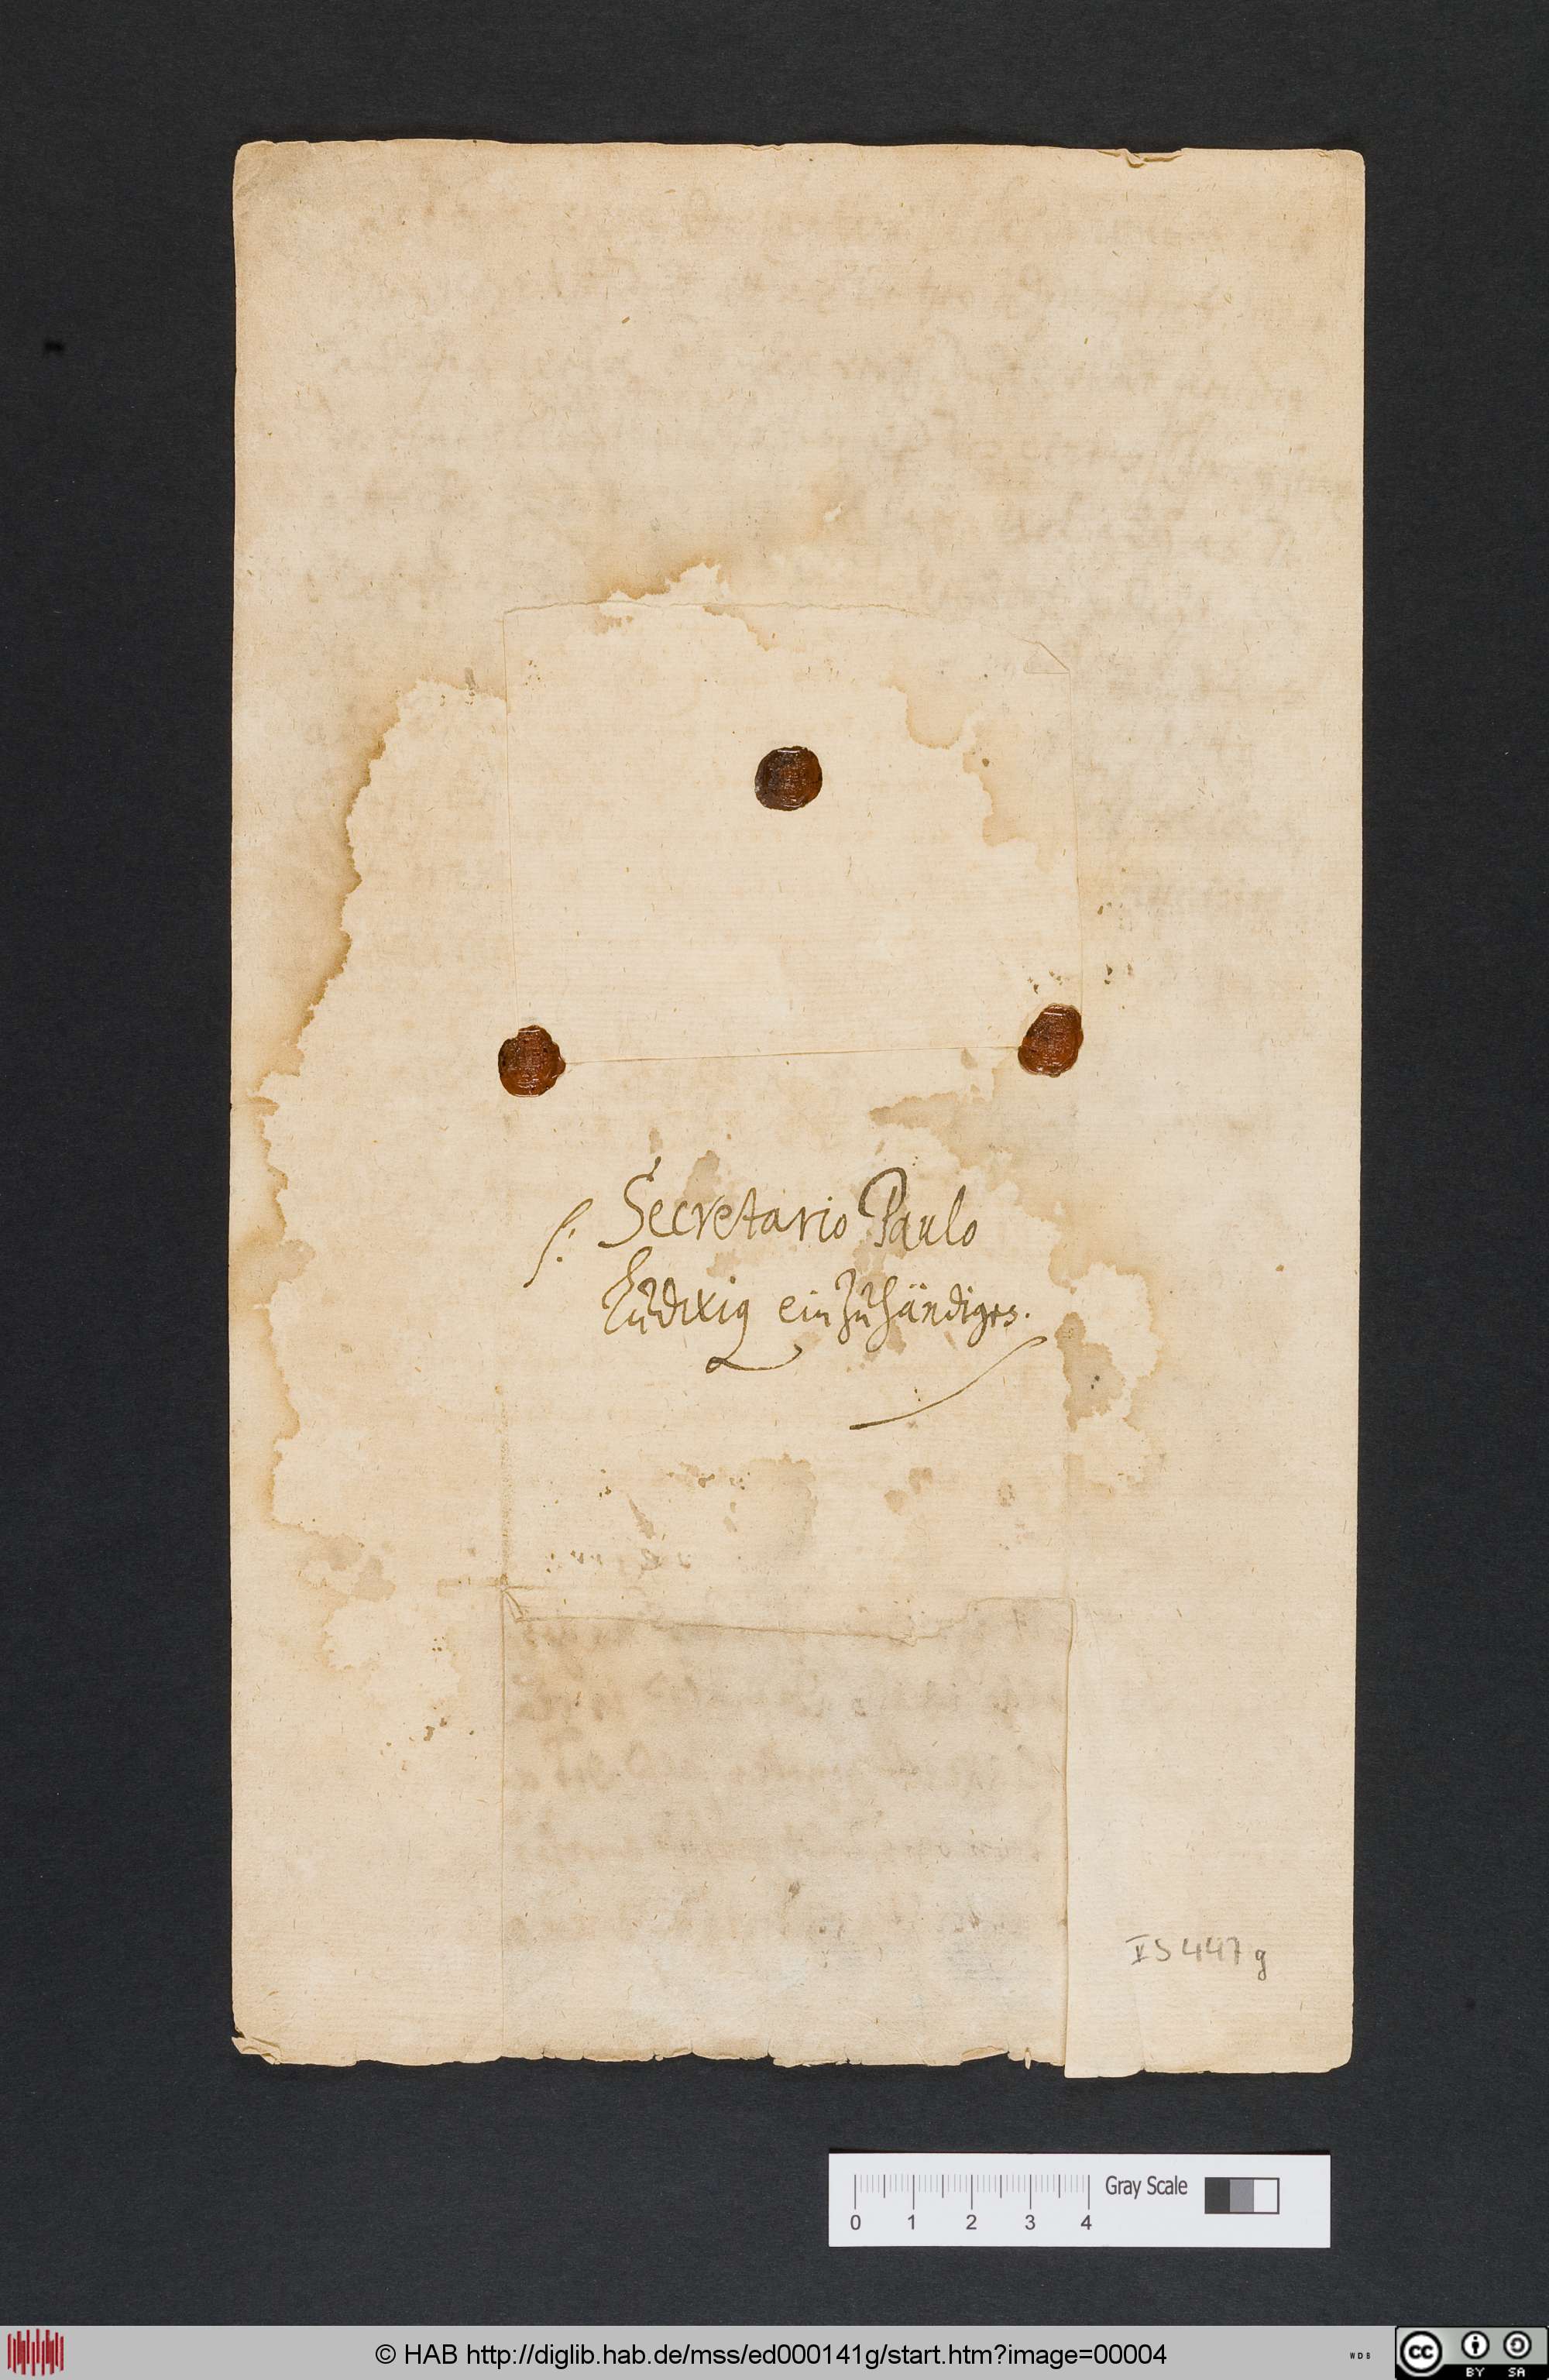 S: Secretario Paulo
Ludwig einzuhändigen.
IS 447 g
0 1 2 3 4 Gray Scale
© HAB http://diglib.hab.de/mss/ed000141g/start.htm?image=00004
WDB
cc BY SA